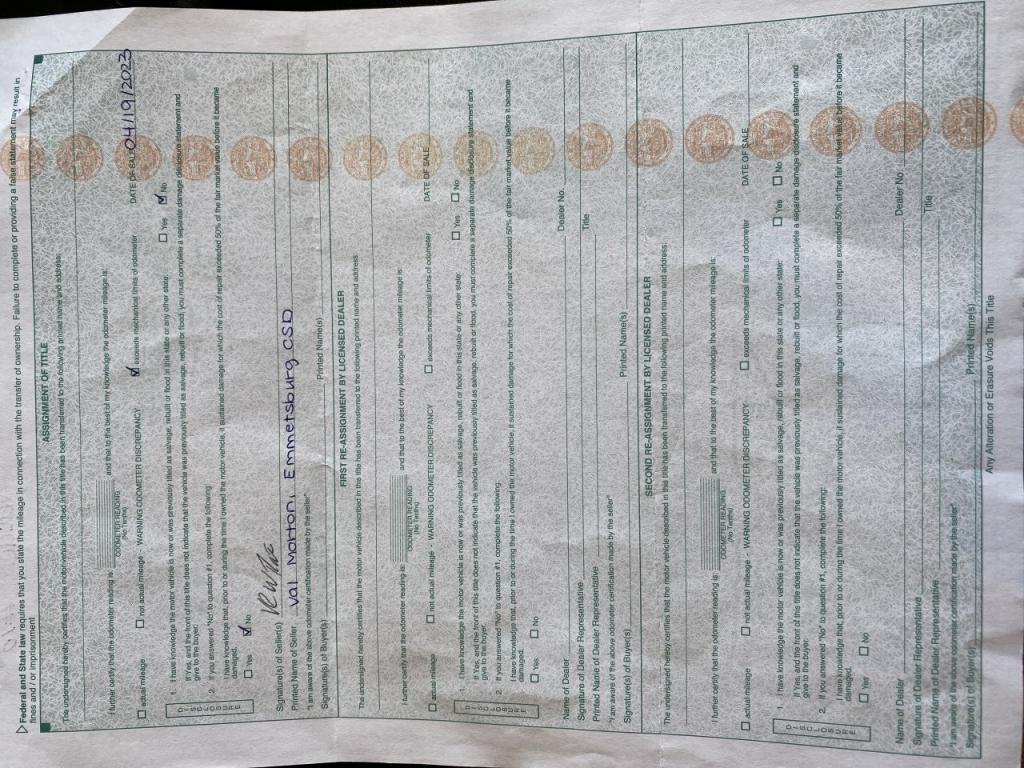 ▷ Federal and State law requires that you state the mileage in connection with the transfer of ownership. Failure to complete or providing a false statement may result in
fines and / or imprisonment
ASSIGNMENT OF TITLE
The undersigned hereby certifies that the motor vehicle described in this title has been transferred to the following printed name and address:
I further certify that the odometer reading is: and that to the best of my knowledge the odometer mileage is:
ODOMETER READING
(No Tenths)
☐ actual mileage ☐ not actual mileage - WARNING ODOMETER DISCREPANCY ☑ exceeds mechanical limits of odometer DATE OF SALE 04/19/2023
DISCLOSURE
1. I have knowledge the motor vehicle is now or was previously titled as salvage, rebuilt or flood in this state or any other state: ☐ Yes ☑ No
If Yes, and the front of this title does not indicate that the vehicle was previously titled as salvage, rebuilt or flood, you must complete a separate damage disclosure statement and
give to the buyer.
2. If you answered "No" to question #1, complete the following:
I have knowledge that, prior to or during the time I owned the motor vehicle, it sustained damage for which the cost of repair exceeded 50% of the fair market value before it became
damaged. ☐ Yes ☑ No
Signature(s) of Seller(s)
Printed Name of Seller Val Morton, Emmetsburg CSD
"I am aware of the above odometer certification made by the seller"
Signature(s) of Buyer(s) Printed Name(s)
FIRST RE-ASSIGNMENT BY LICENSED DEALER
The undersigned hereby certifies that the motor vehicle described in this title has been transferred to the following printed name and address:
I further certify that the odometer reading is: and that to the best of my knowledge the odometer mileage is:
ODOMETER READING
(No Tenths)
☐ actual mileage ☐ not actual mileage - WARNING ODOMETER DISCREPANCY ☐ exceeds mechanical limits of odometer DATE OF SALE
DISCLOSURE
1. I have knowledge the motor vehicle is now or was previously titled as salvage, rebuilt or flood in this state or any other state: ☐ Yes ☐ No
If Yes, and the front of this title does not indicate that the vehicle was previously titled as salvage, rebuilt or flood, you must complete a separate damage disclosure statement and
give to the buyer.
2. If you answered "No" to question #1, complete the following:
I have knowledge that, prior to or during the time I owned the motor vehicle, it sustained damage for which the cost of repair exceeded 50% of the fair market value before it became
damaged. ☐ Yes ☐ No
Name of Dealer Dealer No.
Signature of Dealer Representative Title
Printed Name of Dealer Representative
"I am aware of the above odometer certification made by the seller"
Signature(s) of Buyer(s) Printed Name(s)
SECOND RE-ASSIGNMENT BY LICENSED DEALER
The undersigned hereby certifies that the motor vehicle described in this title has been transferred to the following printed name and address:
I further certify that the odometer reading is: and that to the best of my knowledge the odometer mileage is:
ODOMETER READING
(No Tenths)
☐ actual mileage ☐ not actual mileage - WARNING ODOMETER DISCREPANCY ☐ exceeds mechanical limits of odometer DATE OF SALE
DISCLOSURE
1. I have knowledge the motor vehicle is now or was previously titled as salvage, rebuilt or flood in this state or any other state: ☐ Yes ☐ No
If Yes, and the front of this title does not indicate that the vehicle was previously titled as salvage, rebuilt or flood, you must complete a separate damage disclosure statement and
give to the buyer.
2. If you answered "No" to question #1, complete the following:
I have knowledge that, prior to or during the time I owned the motor vehicle, it sustained damage for which the cost of repair exceeded 50% of the fair market value before it became
damaged. ☐ Yes ☐ No
Name of Dealer Dealer No
Signature of Dealer Representative Title
Printed Name of Dealer Representative
"I am aware of the above odometer certification made by the seller"
Signature(s) of Buyer(s) Printed Name(s)
Any Alteration or Erasure Voids This Title